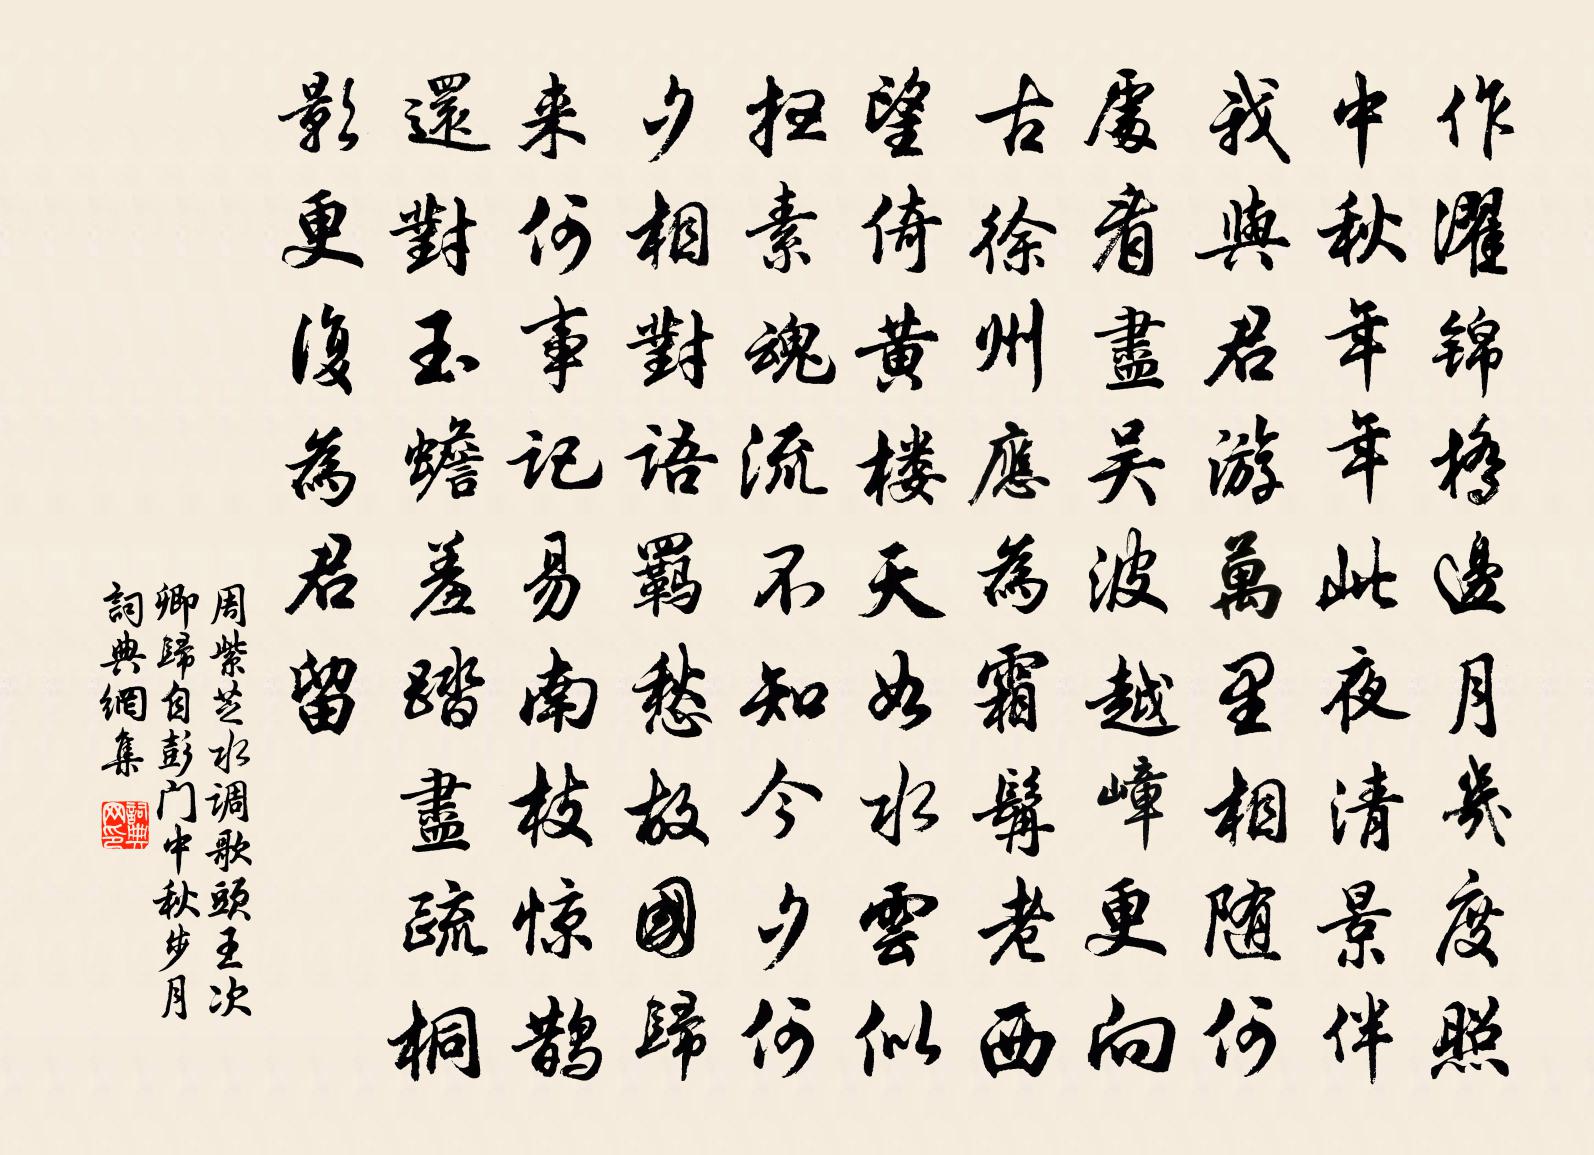 作濯锦橋邊月幾度照
中秋年年年此夜清景伴
我與君游萬里相随何
處看盡吴波越嶂更向
古徐州應為霜髯老西
望倚黄楼天如水雲似
扫素魂流不知今夕何
夕相對語羈愁故國歸
来何事记易南枝惊鹊
還對玉蟾羞踏盡疏桐
影更復為君留
周紫芝水调歌頭王次
卿歸自彭门中秋步月
詞典網集